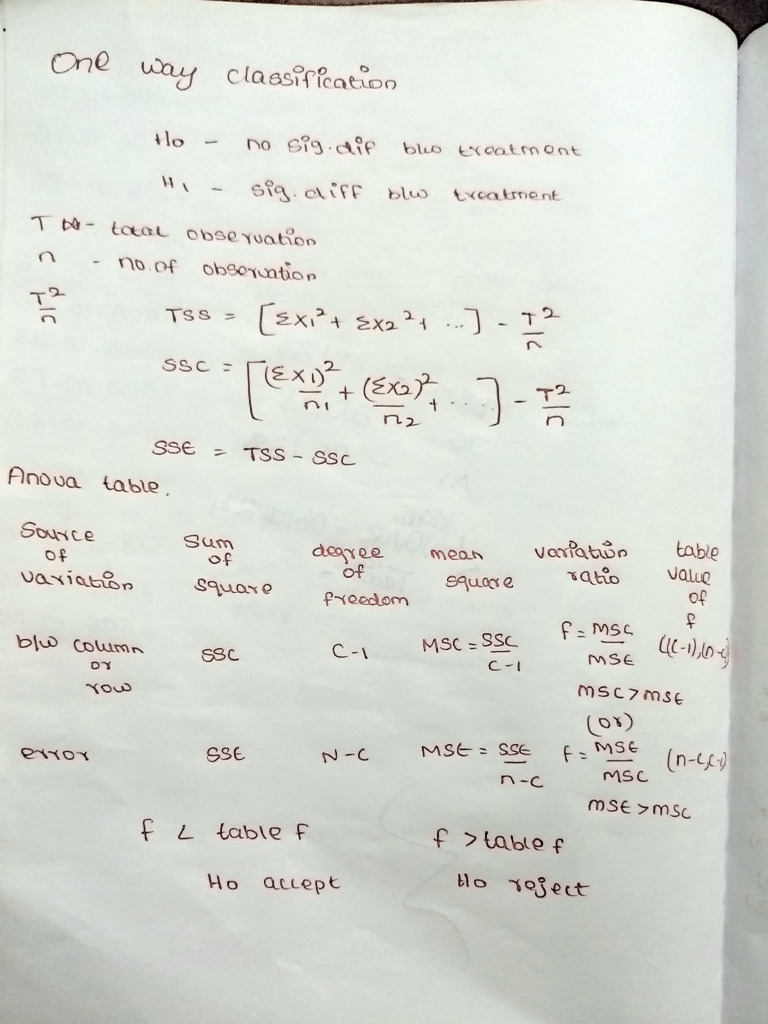 One way classification
Ho - no sig.dif b/w treatment
H1 - sig.diff b/w treatment
T - total observation
n - no.of observation
T²/n
TSS = [Σx1² + Σx2² + ...] - T²/n
SSC = [(Σx1)²/n1 + (Σx2)²/n2 + ...] - T²/n
SSE = TSS - SSC
Anova table.
Source of variation   Sum of square   degree of freedom   mean square   variation ratio   table value of f
b/w column or row   SSC   C-1   MSC = SSC/C-1   f = MSC/MSE   ((C-1),(n-c)
MSC > MSE
(or)
error   SSE   N-C   MSE = SSE/n-c   f = MSE/MSC   (n-c,c-1)
MSE > MSC
f < table f   f > table f
Ho accept   Ho reject